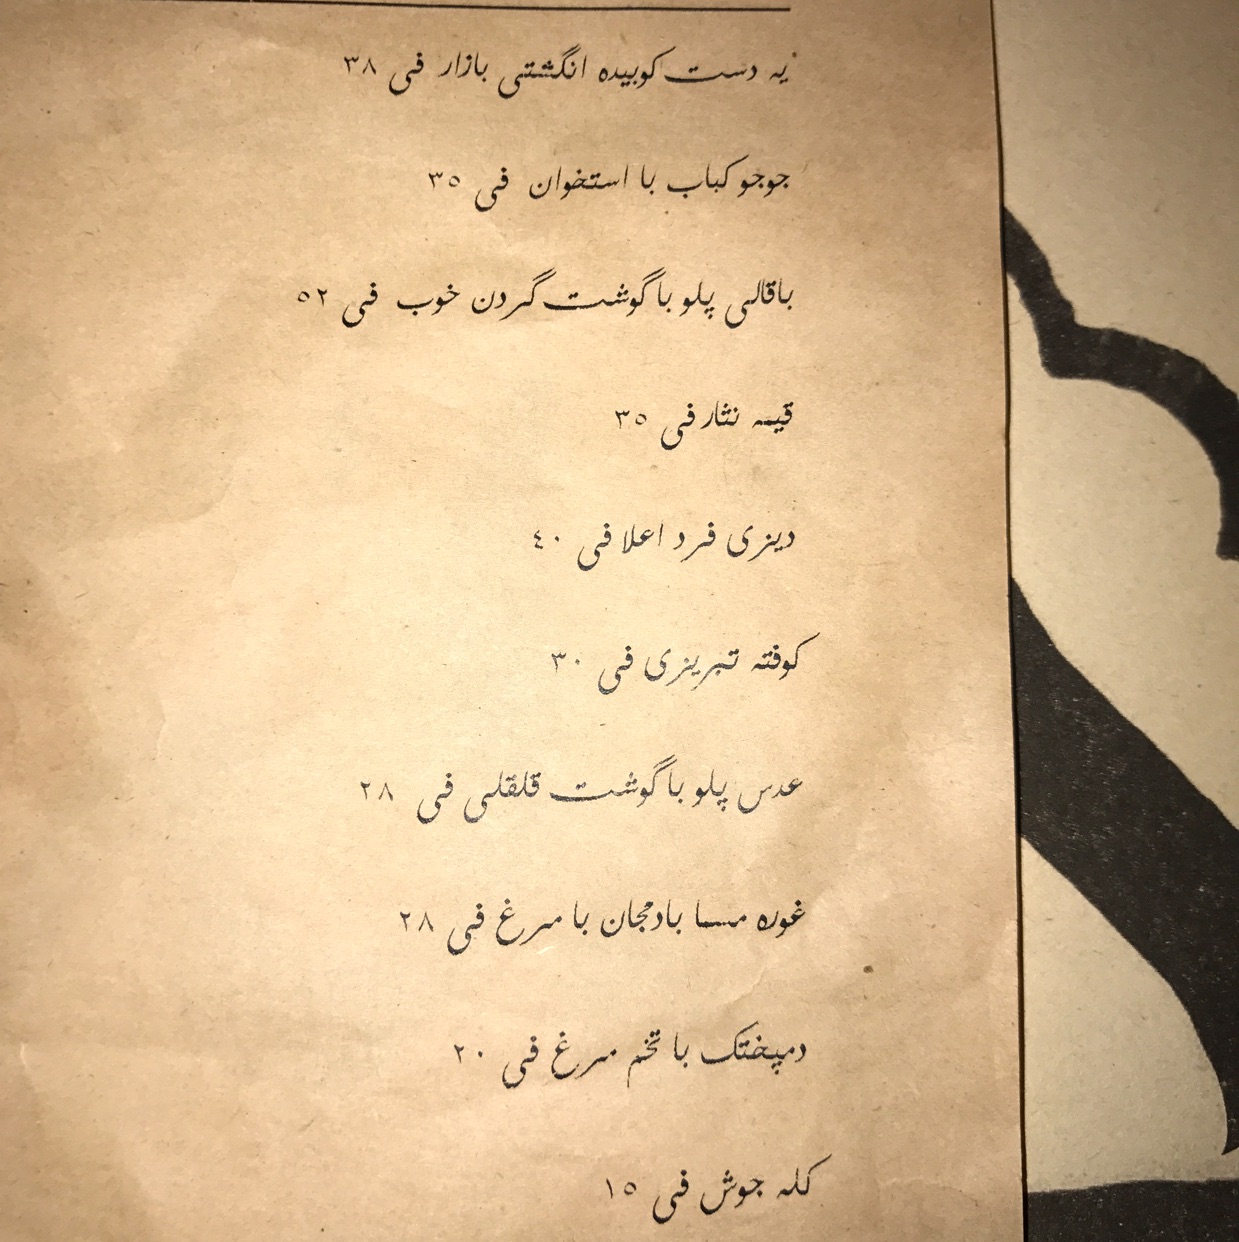 یه دست کوبیده انگشتی بازار فی ۳۸
جوجو کباب با استخوان فی ۳۵
باقالی پلو با گوشت گردن خوب فی ۵۲
قیمه نثار فی ۳۵
دیزی فرد اعلا فی ۴۰
کوفته تبریزی فی ۳۰
عدس پلو با گوشت قلقلی فی ۲۸
غوره مسا بادمجان با مرغ فی ۲۸
دمپختک با تخم مرغ فی ۲۰
کله جوش فی ۱۵